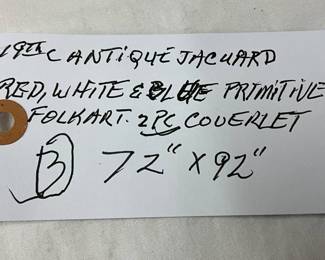 19th C ANTIQUE JACUARD
RED, WHITE & BLUE PRIMITIVE
FOLKART. 2PC COVERLET
B 72" X 92"